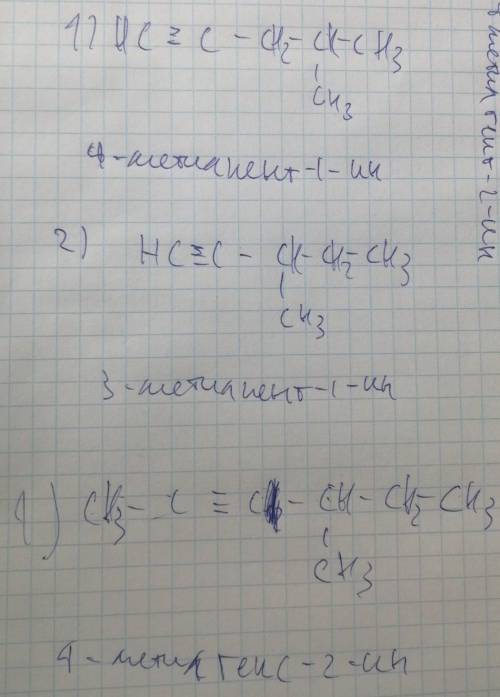 1) HC ≡ C - CH2 - CH - CH3
CH3
4-метилпент-1-ин
2) HC ≡ C - CH - CH2 - CH3
CH3
3-метилпент-1-ин
1) CH3 - C ≡ C - CH - CH2 - CH3
CH3
4-метилгекс-2-ин